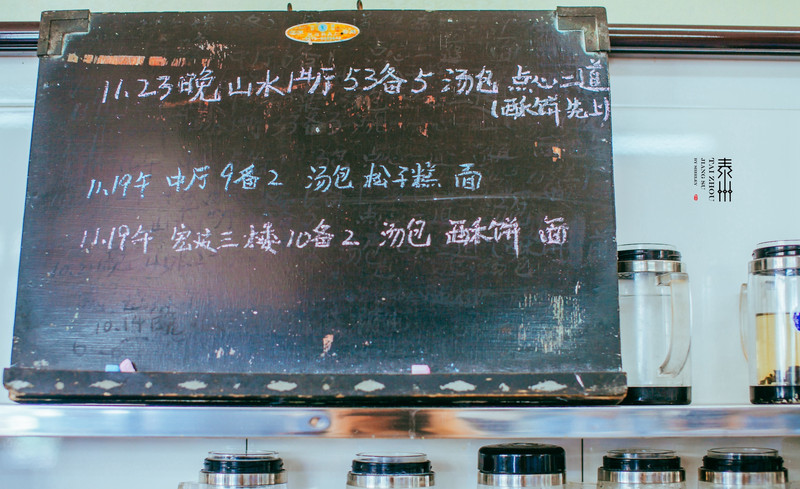 11.23晚 山水1#厅 53备5 汤包 点心二道
(酥饼先上)
11.19午 中厅 9备2 汤包 松子糕 面
11.19午 宏波三楼 10备2 汤包 酥饼 面
10.19晚
泰州
TAI ZHOU
JIANG SU